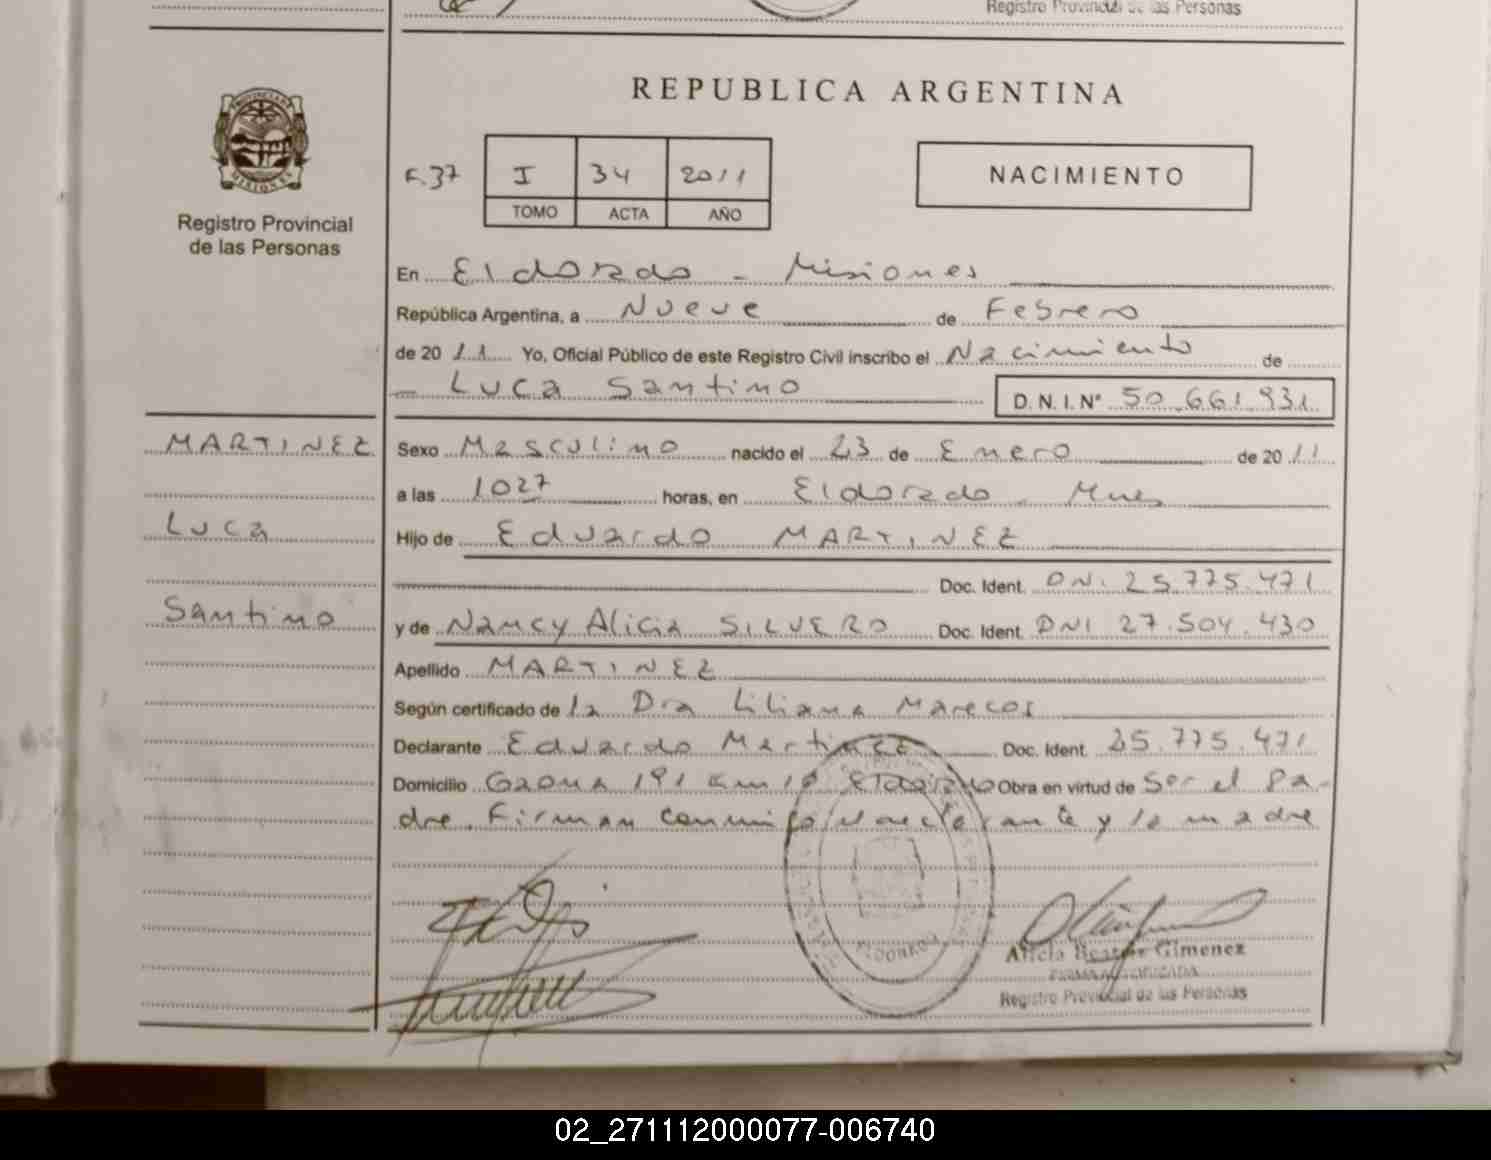 Registro Provincial de las Personas
REPUBLICA ARGENTINA
F.37 I 34 2011
TOMO ACTA AÑO
NACIMIENTO
PROVINCIA DE MISIONES
Registro Provincial
de las Personas
En Eldorado - Misiones
República Argentina, a Nueve de Febrero
de 2011 Yo, Oficial Público de este Registro Civil inscribo el Nacimiento de
- Luca Santino D.N.I.Nº 50.661.931
MARTINEZ
Luca
Santino
Sexo Masculino nacido el 23 de Enero de 2011
a las 1027 horas, en Eldorado - Mnes
Hijo de Eduardo MARTINEZ
Doc. Ident. DNI 25.775.471
y de Nancy Alicia SILVERO Doc. Ident. DNI 27.504.430
Apellido MARTINEZ
Según certificado de la Dra Liliana Marecos
Declarante Eduardo Martinez Doc. Ident. 25.775.471
Domicilio Gaona 191 km 10 Eldorado Obra en virtud de Ser el pa-
dre. Firman conmigo el declarante y la madre
ELDORADO
Alicia Beatriz Gimenez
FIRMA AUTORIZADA
Registro Provincial de las Personas
02_271112000077-006740